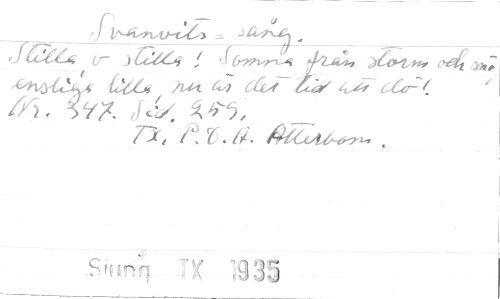 Svanvits = sång.
Stilla, o stilla! Somna från storm och snö,
ensliga lilla, nu är det tid att dö!
Nr. 347. Sid. 259.
TX. P. D. A. Atterbom.
Sjung TX 1935